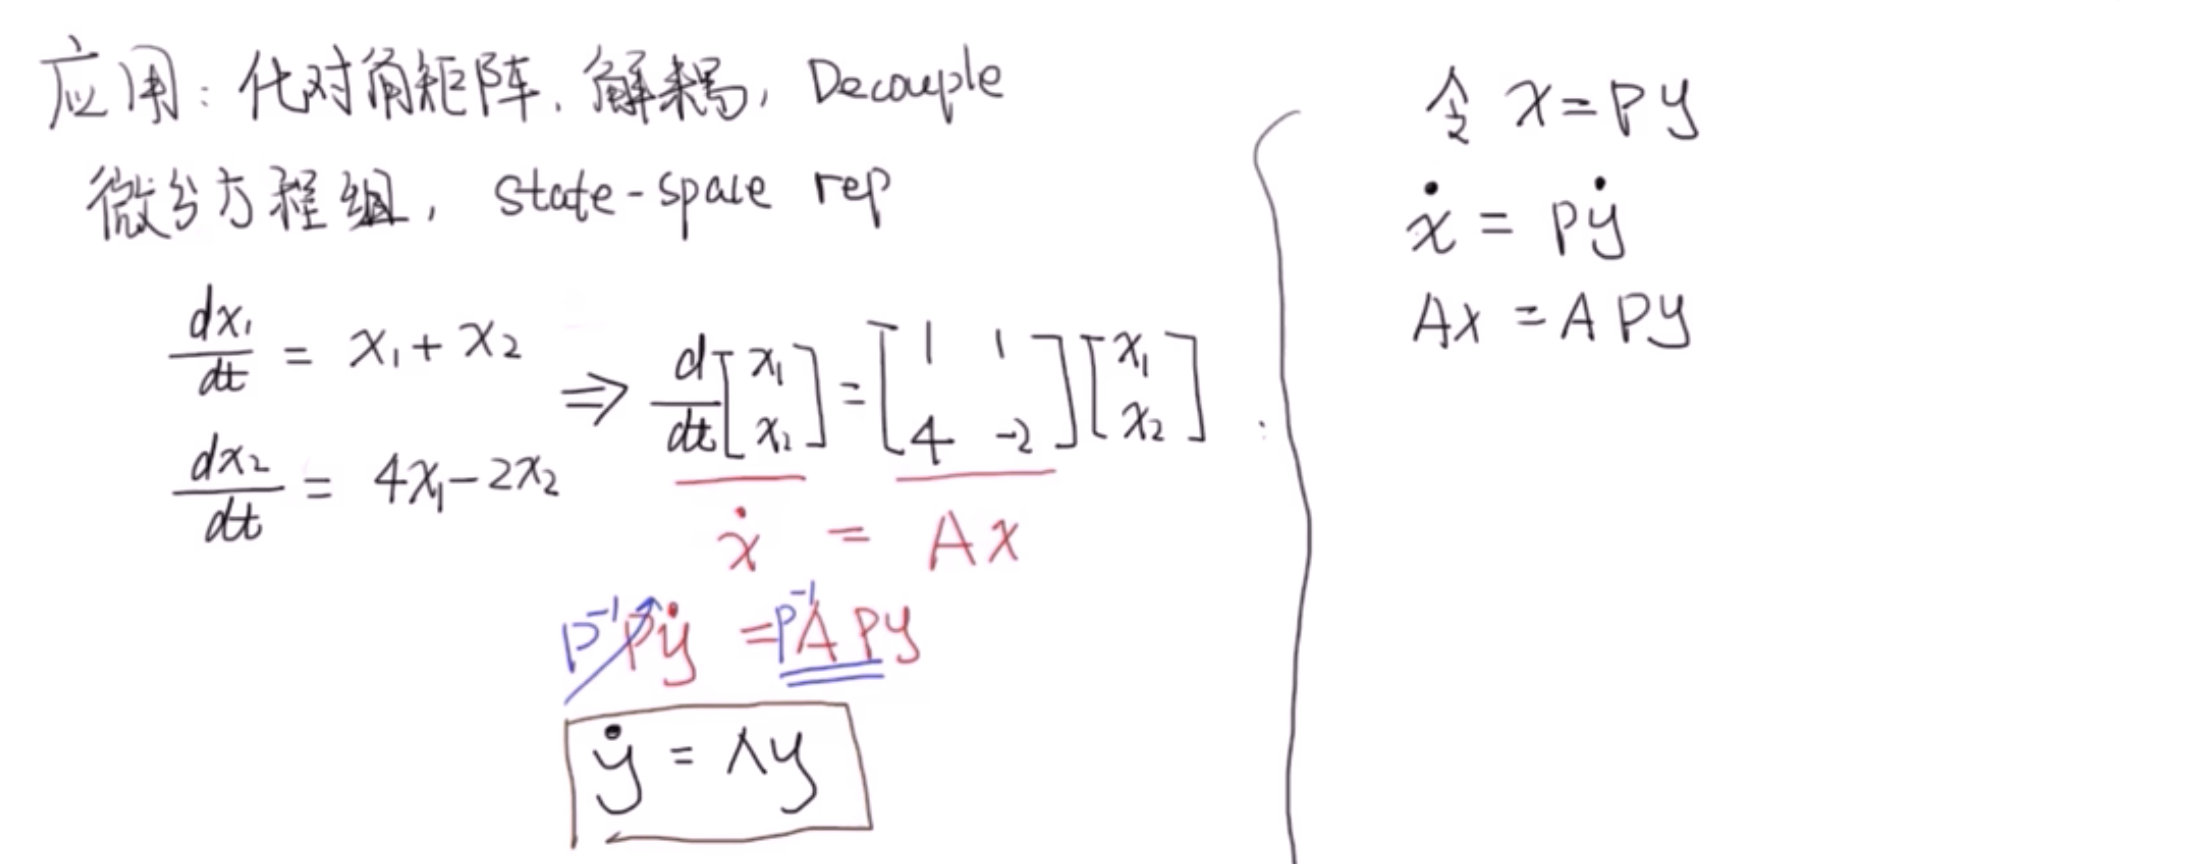 应用：化对角矩阵，解耦，Decouple
微分方程组，state-space rep
dx₁/dt = x₁ + x₂
dx₂/dt = 4x₁ - 2x₂
⇒ d/dt [x₁ x₂] = [1 1 4 -2] [x₁ x₂]
ẋ = Ax
P⁻¹Pẏ = P⁻¹APy
ẏ = Λy
令 x = Py
ẋ = Pẏ
Ax = APy